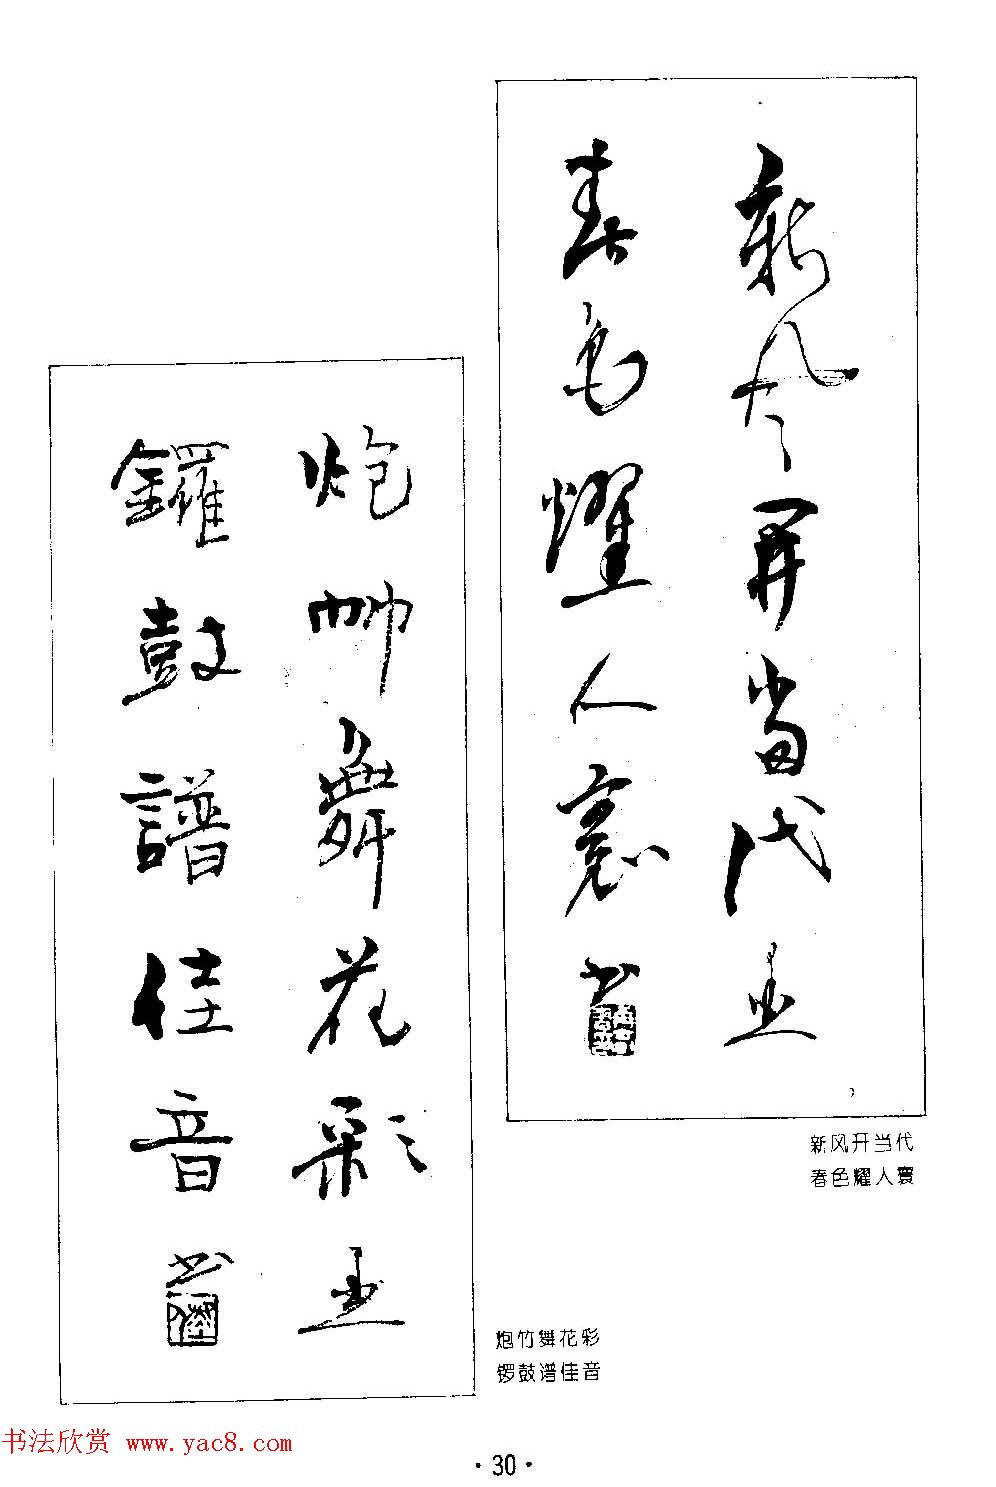 新风开当代
春色耀人寰
书
新风开当代
春色耀人寰
炮竹舞花彩
鑼鼓譜佳音
书
炮竹舞花彩
锣鼓谱佳音
书法欣赏 www.yac8.com
·30·